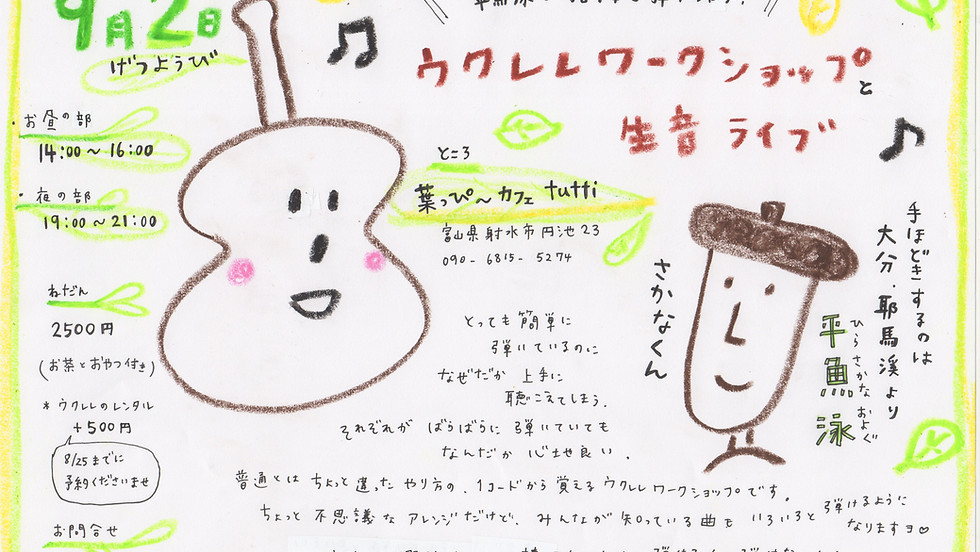 9月2日
げつようび
ウクレレワークショップと
生音ライブ
・お昼の部
14:00〜16:00
・夜の部
19:00〜21:00
ところ
葉っぴ〜カフェ tutti
富山県射水市円池23
090-6815-5274
ねだん
2500円
(お茶とおやつ付き)
* ウクレレのレンタル
+500円
8/25までに
予約くださいませ
お問合せ
手ほどきするのは
大分・耶馬溪より
平魚泳
ひらさかなおよぐ
さかなくん
とっても簡単に
弾いているのに
なぜだか 上手に
聴こえてしまう.
それぞれが ばらばらに 弾いていても
なんだか 心地良い.
普通とは ちょっと違った やり方の、1コードから覚えるウクレレワークショップです。
ちょっと 不思議な アレンジだけど、みんなが知っている曲を いろいろと 弾けるように
なりますヨ♡